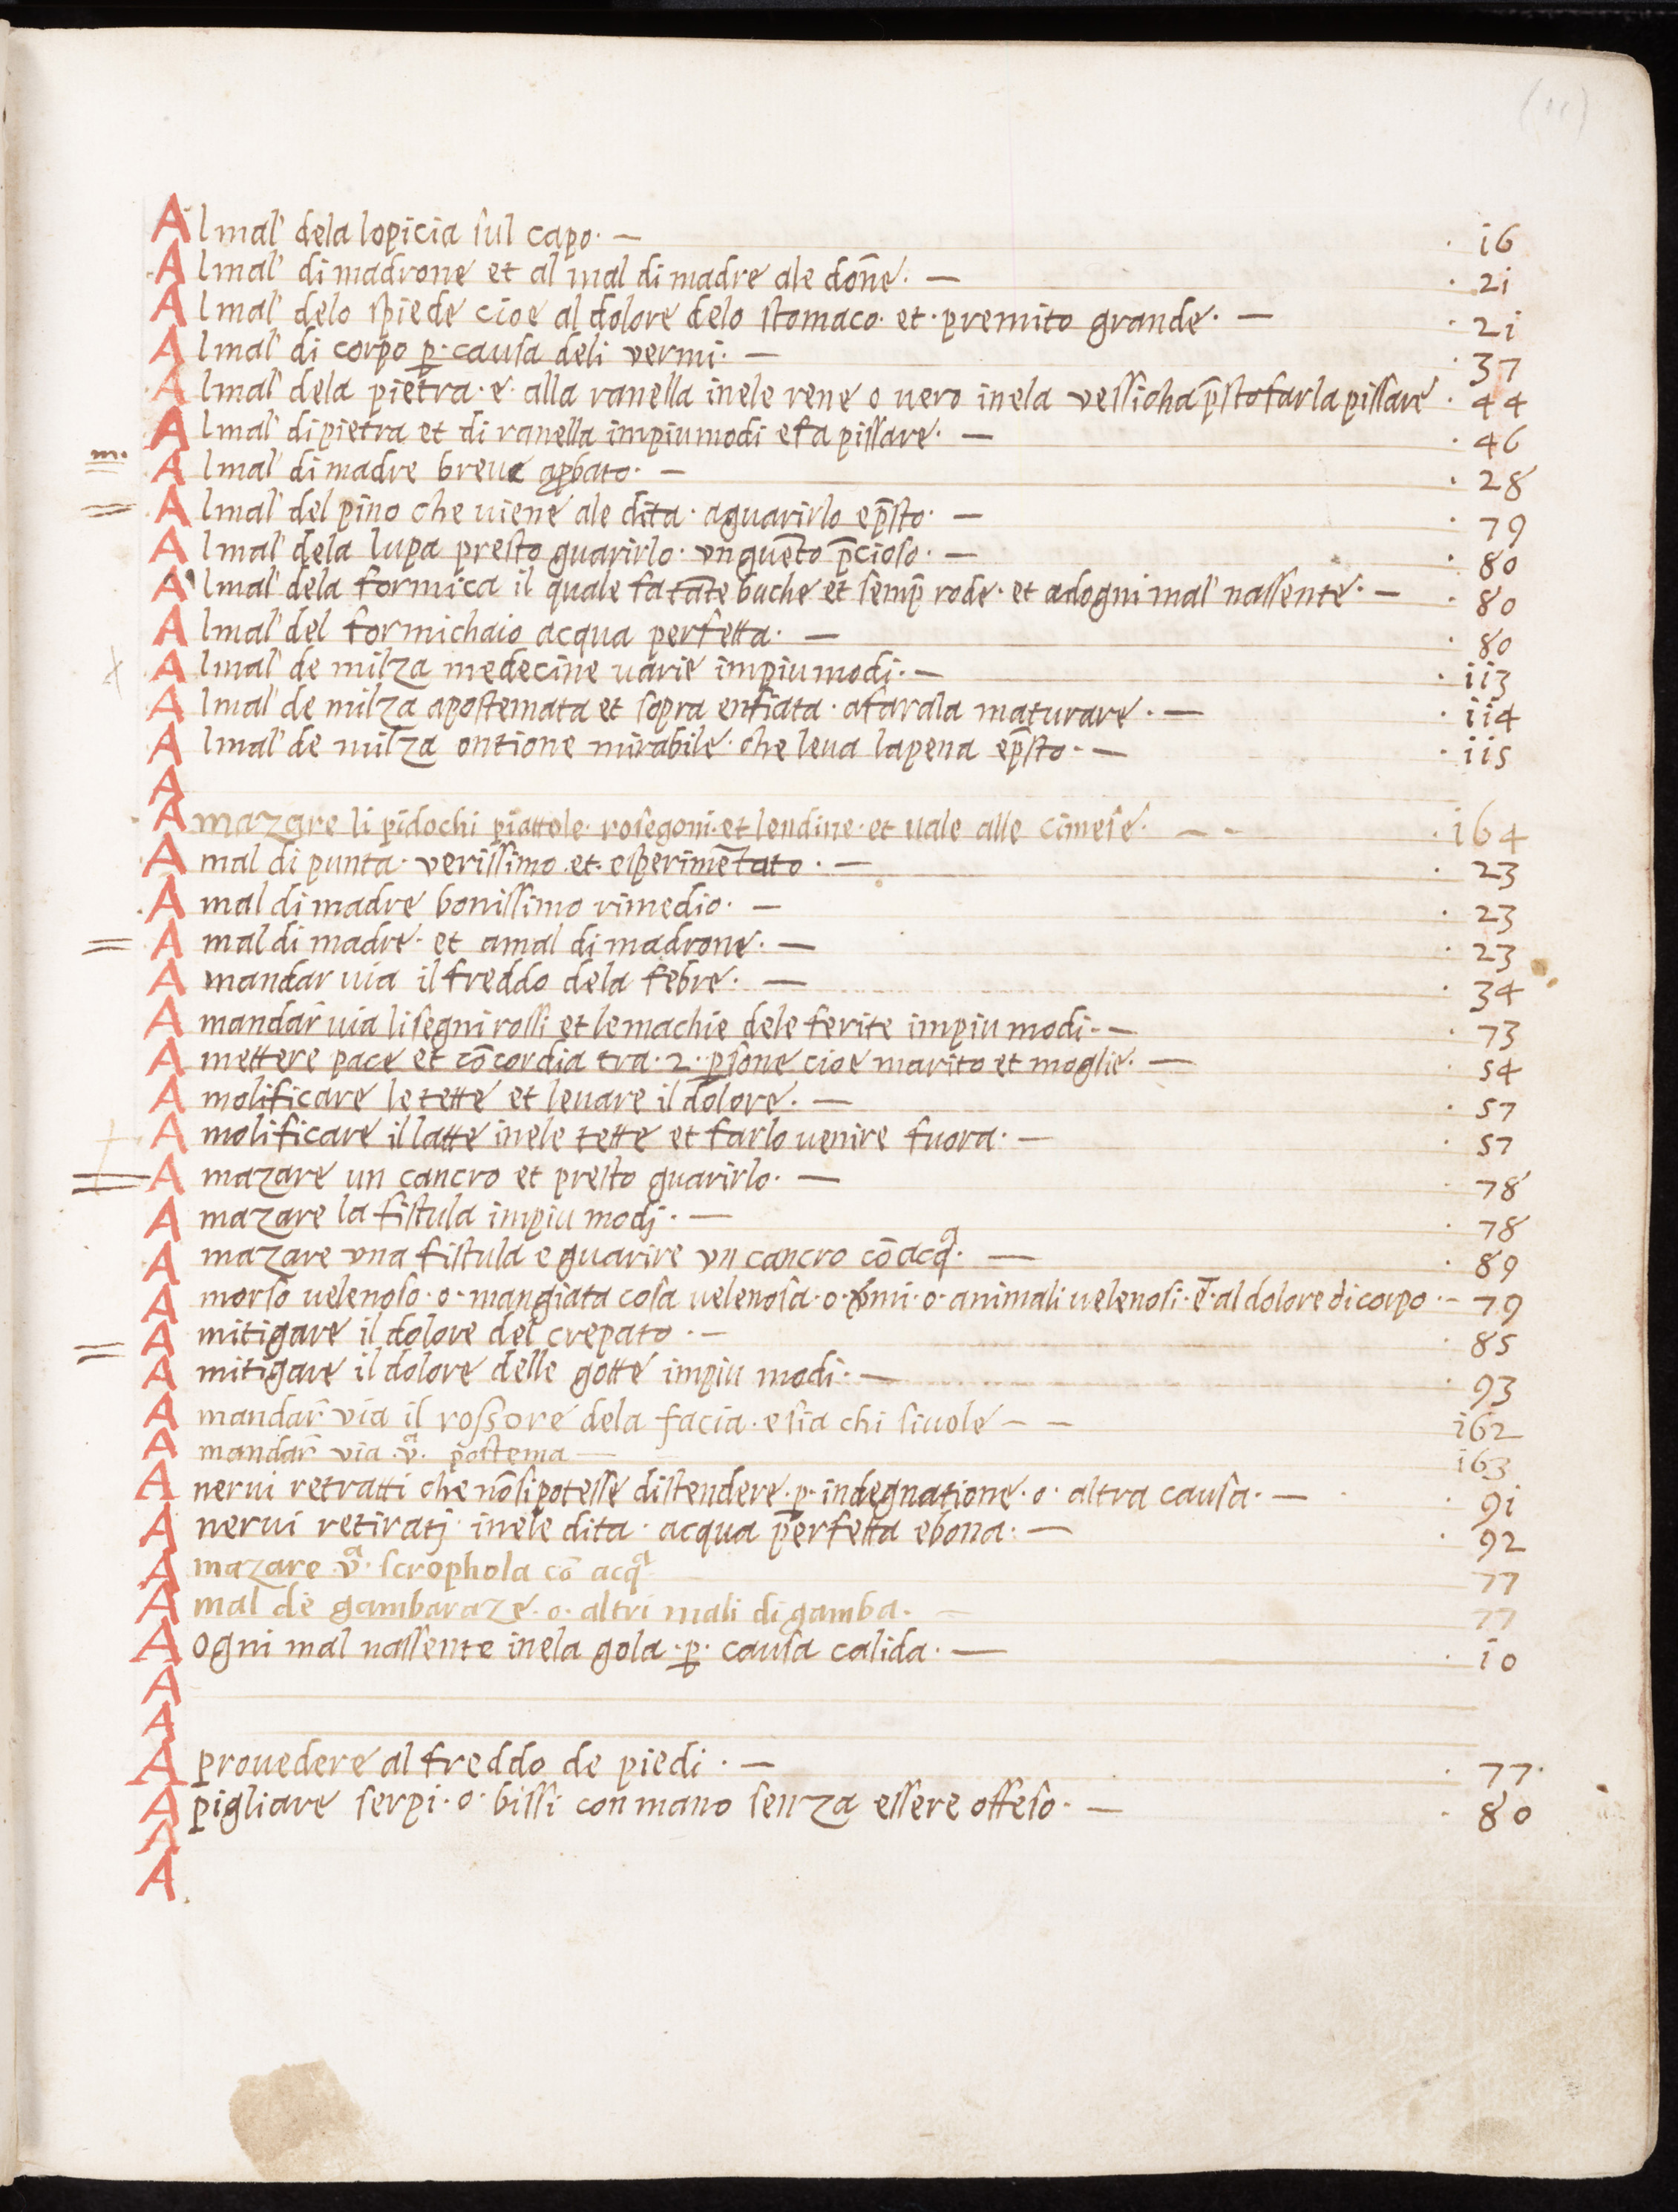 (11)
Al mal' dela lopicia sul capo· — · i6
Al mal' di madrone et al mal di madre ale don̄e· — · 2i
Al mal' delo spiede cioe al dolore delo stomaco· et· premito grande· — · 2i
Al mal' di corpo p̱· causa deli vermi· — · 37
Al mal' dela pietra· e· alla ranella inele rene o uero inela vessicha p̄sto farla pissare · 44
Al mal' di pietra et di ranella impiu modi e fa pissare· — · 46
m· Al mal' di madre breue ap̱bato· — · 28
= Al mal' del pino che uiene ale dita· aguarirlo e p̄sto· — · 79
Al mal' dela lupa presto guarirlo· vnguēto p̄cioso· — · 80
Al mal' dela formica il quale fa tāte buche et semp̱ rode· et adogni mal' nassente· — · 80
Al mal' del formichaio acqua perfetta· — · 80
Al mal' de milza medecine uarie impiu modi· — · ii3
Al mal' de milza apostemata et sopra enfiata· afarala maturare· — · ii4
Al mal' de milza ontione mirabile· che leua la pena e p̄sto· — · ii5
A
A mazare li pidochi piattole· rosegoni· et lendine· et uale alle cimese· — - · i64
A mal di punta· verissimo· et· esperimētato· — · 23
A mal di madre bonissimo rimedio· — · 23
= A mal di madre· et amal di madrone· — · 23
A mandar uia il freddo dela febre· — · 34
A mandar̄ uia li segni rossi et le machie dele ferite impiu modi· — · 73
A mettere pace et cōcordia tra· 2· p̱sone cioe marito et moglie· — · 54
A molificare le tette et leuare il dolore· — · 57
A molificare il latte inele tette et farlo uenire fuora· — · 57
= A mazare un cancro et presto guarirlo· — · 78
A mazare la fistula impiu modj· — · 78
A mazare vna fistula e guarire vn cancro cō acqᵃ· — · 89
A morso uelenoso· o· mangiata cosa uelenosa· o· v̱mi· o· animali uelenosi· ē· al dolore di corpo ·- 79
= A mitigare il dolore del crepato· — · 85
A mitigare il dolore delle gotte impiu modi· — · 93
A mandar̄ via il rossore dela facia· e sia chi si uole — — i62
A mandar̄ via· vᵃ· postema — i63
A nerui retratti che nō si potesse distendere· p̱· indegnatione· o· altra causa· — · 9i
A nerui retiratj· inele dita· acqua perfetta e bona· — · 92
A mazare vᵃ· scrophola cō acqᵃ 77
A mal de gambaraze· o· altri mali di gamba· — 77
A ogni mal nassente inela gola· p̱· causa calida· — · i0
A
A
A prouedere al freddo de piedi· — · 77·
A pigliare serpi· o· bissi con mano senza essere offeso· — · 80
A
A